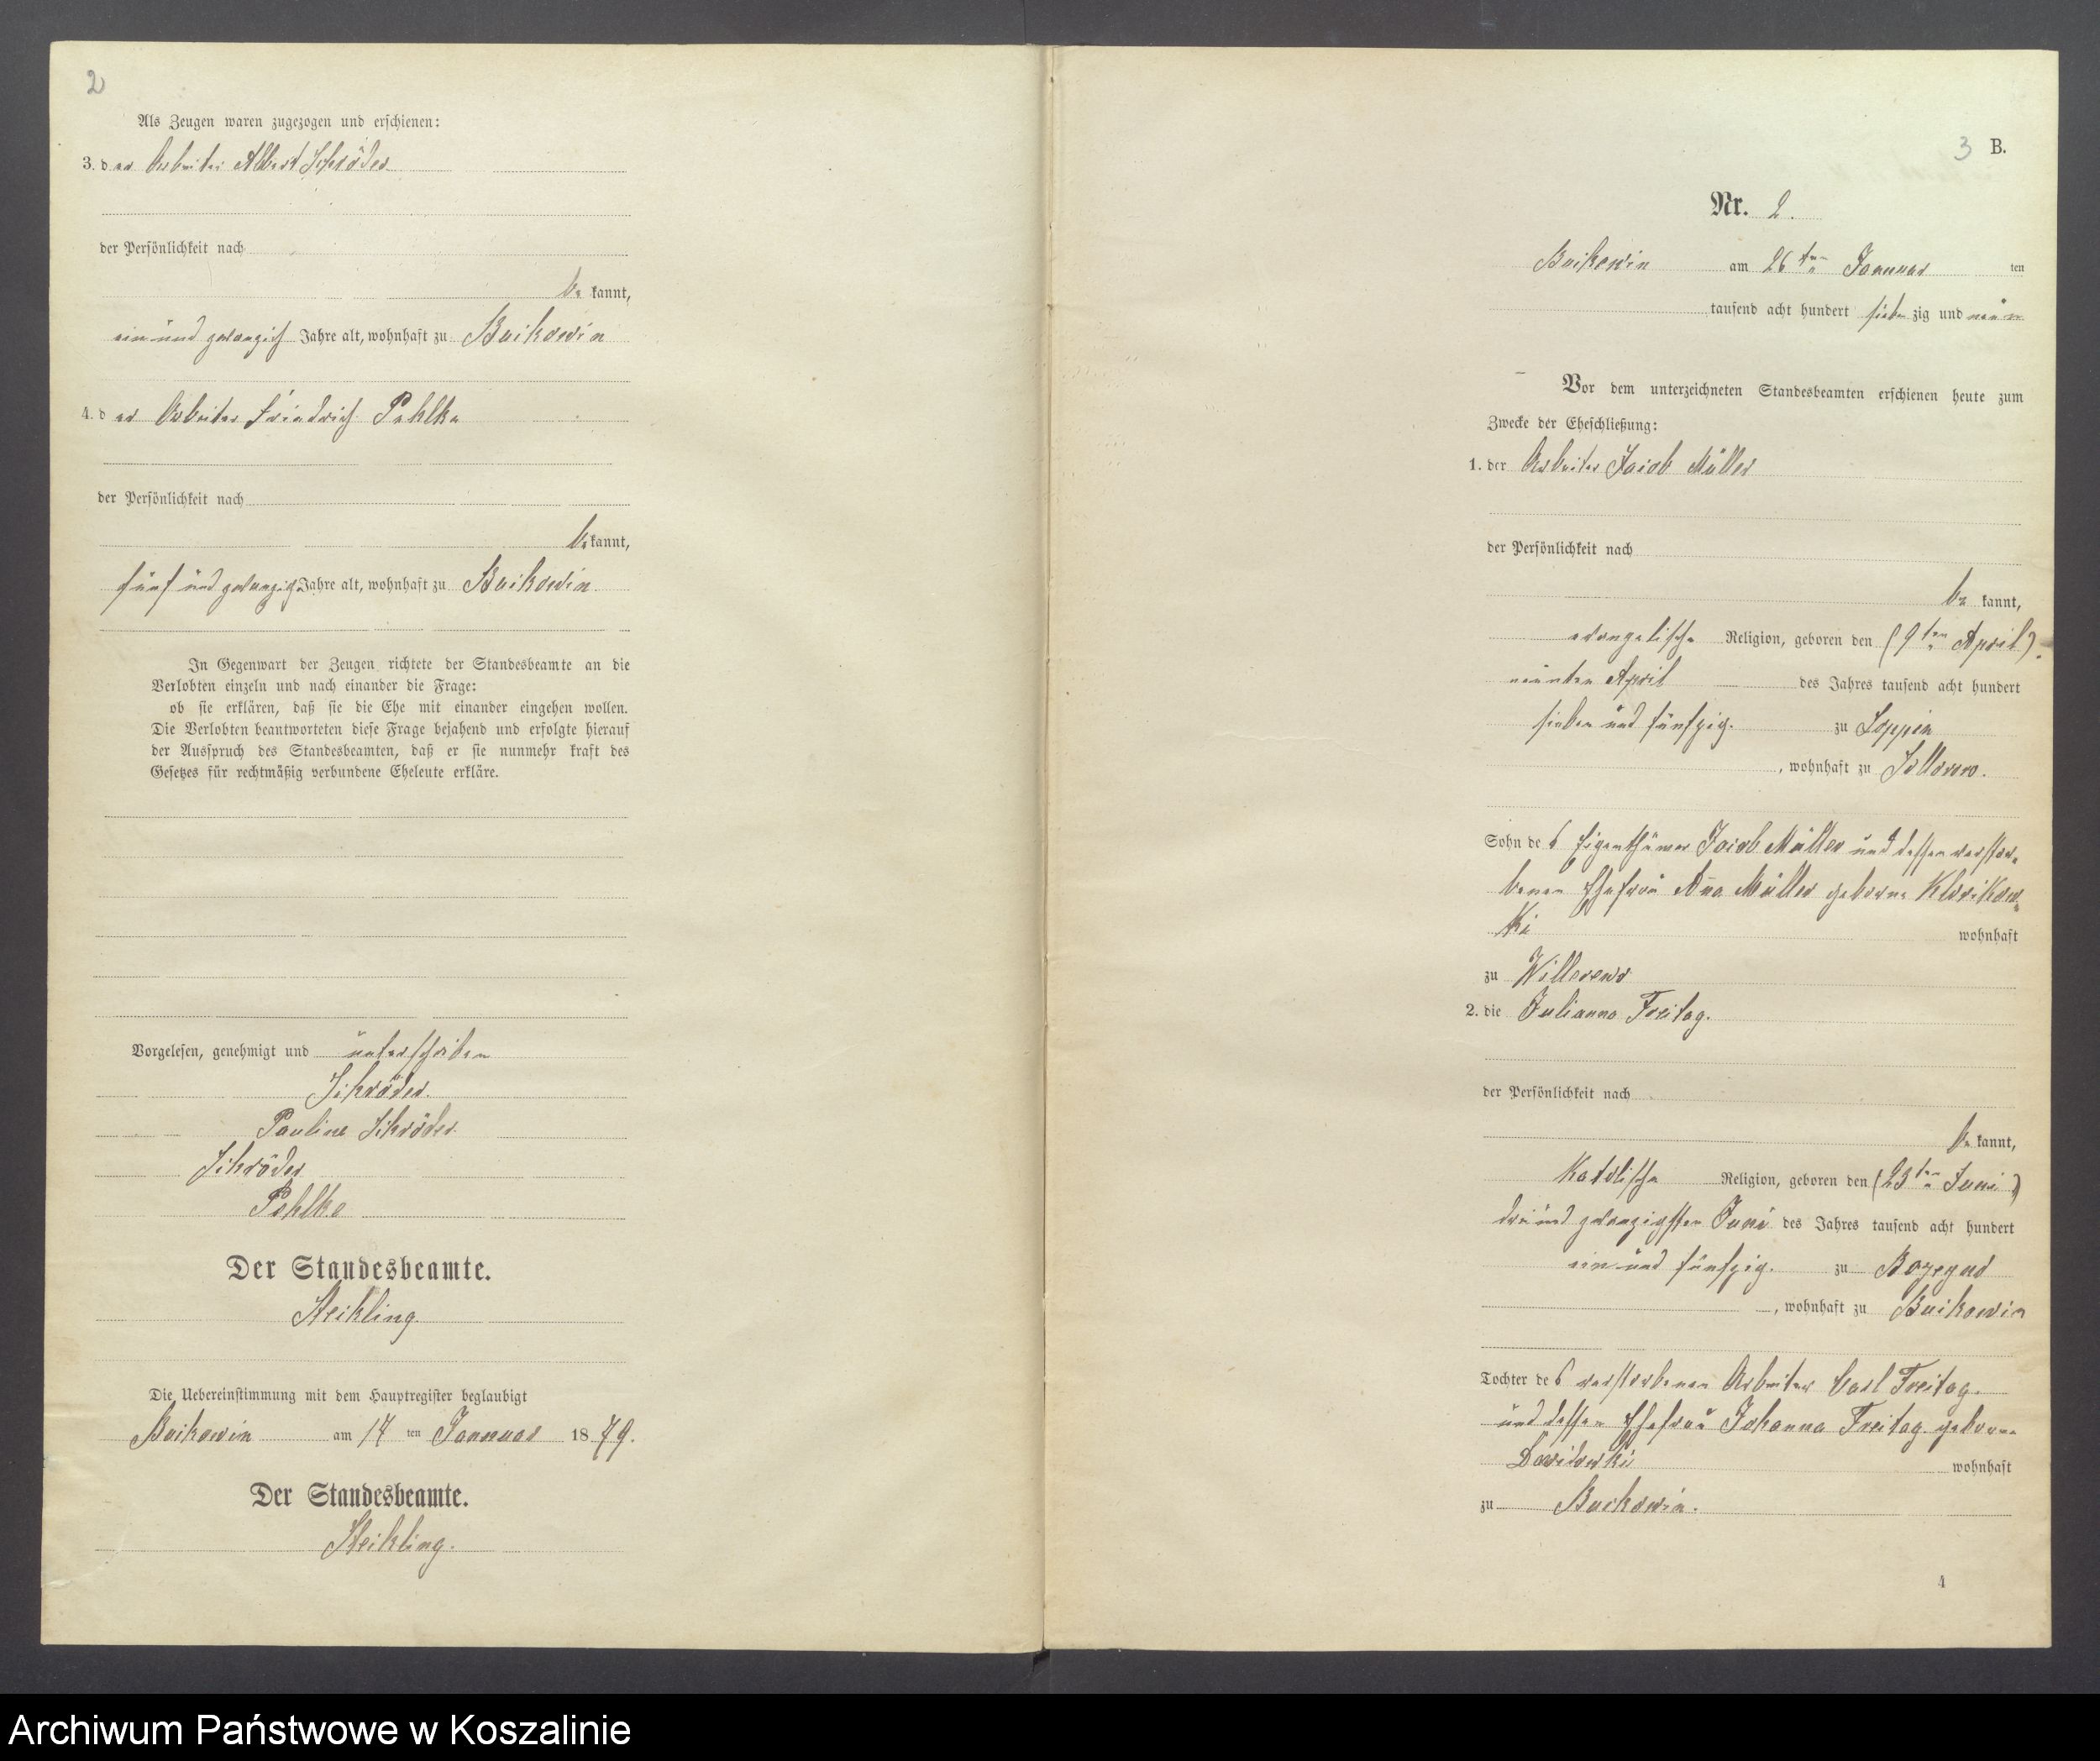 2
Als Zeugen waren zugezogen und erschienen:
3. der Arbeiter Albert Schröder
der Persönlichkeit nach
be kannt,
ein und zwanzig Jahre alt, wohnhaft zu Buckowin
4. der Arbeiter Friedrich Pehlke
der Persönlichkeit nach
be kannt,
fünf und zwanzig Jahre alt, wohnhaft zu Buckowin.
In Gegenwart der Zeugen richtete der Standesbeamte an die
Verlobten einzeln und nach einander die Frage:
ob sie erklären, daß sie die Ehe mit einander eingehen wollen.
Die Verlobten beantworteten diese Frage bejahend und erfolgte hierauf
der Ausspruch des Standesbeamten, daß er sie nunmehr kraft des
Gesetzes für rechtmäßig verbundene Eheleute erkläre.
Vorgelesen, genehmigt und unterschrieben
Schröder.
Pauline Schröder.
Schröder
Pehlke
Der Standesbeamte.
Die Uebereinstimmung mit dem Hauptregister beglaubigt
Buckowin am 17 ten Januar 1879.
Der Standesbeamte.
3 B.
Nr. 2.
Buckowin am 26ten Januar ten
tausend acht hundert sieben zig und neun
Vor dem unterzeichneten Standesbeamten erschienen heute zum
Zwecke der Eheschließung:
1. der Arbeiter Jacob Müller
der Persönlichkeit nach
be kannt,
evangelische Religion, geboren den (9ten April)
neunten April des Jahres tausend acht hundert
sieben und fünfzig. zu
, wohnhaft zu
Sohn des Eigenthümer Jacob Müller und dessen verstor-
benen Ehefrau Anna Müller geborne
ki wohnhaft
zu
2. die Julianna Freitag.
der Persönlichkeit nach
be kannt,
Katolische Religion, geboren den (23ten Juni)
drei und zwanzigsten Juni des Jahres tausend acht hundert
ein und fünfzig. zu
, wohnhaft zu Buckowin
Tochter des verstorbenen Arbeiter Carl Freitag
und dessen Ehefrau Johanna Freitag geborne
wohnhaft
zu Buckowin.
4
Archiwum Państwowe w Koszalinie